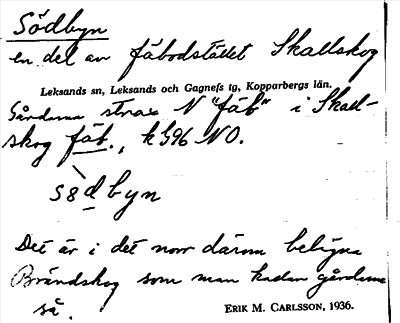 Södbyn
en del av fäbodstället Skallskog
Leksands sn, Leksands och Gagnefs tg, Kopparbergs län.
Gårdarna strax N "fäb" i Skall-
skog fäb., k 596 NO.
södbyn
Det är i det norr därom belägna
Brändskog som man kallar gårdarna
så.
ERIK M. CARLSSON, 1936.